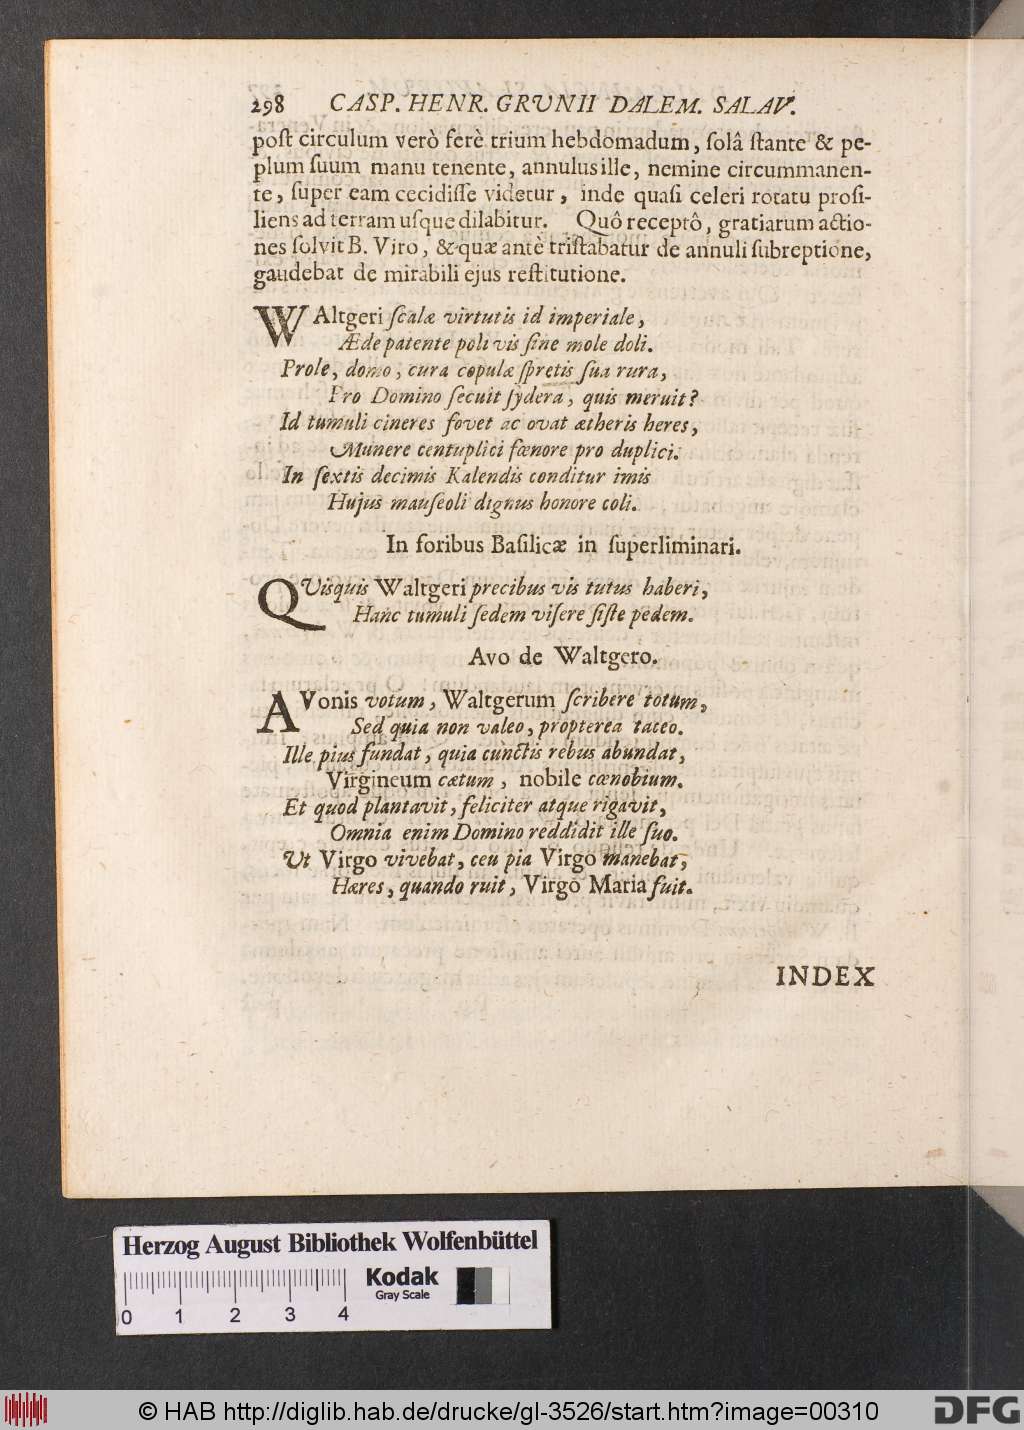 298 CASP. HENR. GRVNII DALEM. SALAV.
poſt circulum verò ferè trium hebdomadum, ſolâ ſtante & pe-
plum ſuum manu tenente, annulus ille, nemine circummanen-
te, ſuper eam cecidiſſe videtur, inde quaſi celeri rotatu proſi-
liens ad terram uſque dilabitur. Quô receptô, gratiarum actio-
nes ſolvit B. Viro, & quæ antè triſtabatur de annuli ſubreptione,
gaudebat de mirabili ejus reſtitutione.
WAltgeri ſcalæ virtutis id imperiale,
Æde patente poli vis ſine mole doli.
Prole, domo, cura copulæ ſpretis ſua rura,
Pro Domino ſecuit ſydera, quis meruit?
Id tumuli cineres fovet ac ovat ætheris heres,
Munere centuplici fœnore pro duplici.
In ſextis decimis Kalendis conditur imis
Hujus mauſeoli dignus honore coli.
In foribus Baſilicæ in ſuperliminari.
QUisquis Waltgeri precibus vis tutus haberi,
Hanc tumuli ſedem viſere ſiſte pedem.
Avo de Waltgero.
AVonis votum, Waltgerum ſcribere totum,
Sed quia non valeo, propterea taceo.
Ille pius fundat, quia cunctis rebus abundat,
Virgineum cœtum, nobile cœnobium.
Et quod plantavit, feliciter atque rigavit,
Omnia enim Domino reddidit ille ſuo.
Ut Virgo vivebat, ceu pia Virgo manebat,
Hæres, quando ruit, Virgo Maria fuit.
INDEX
Herzog August Bibliothek Wolfenbüttel
Kodak
Gray Scale
0 1 2 3 4
© HAB http://diglib.hab.de/drucke/gl-3526/start.htm?image=00310
DFG